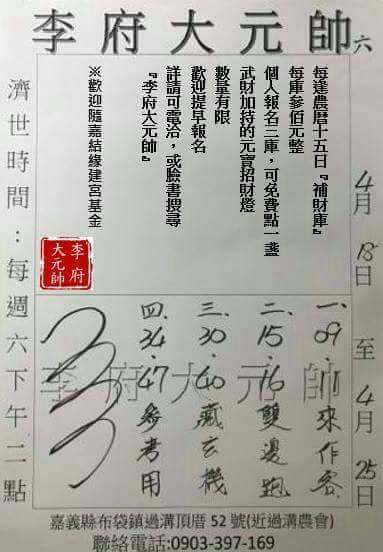 李府大元帥 六
4月18日至4月25日
每逢農曆十五日『補財庫』
每庫參佰元整
個人報名三庫，可免費點一盞
武財加持的元寶招財燈
數量有限
歡迎提早報名
詳請可電洽，或臉書搜尋
『李府大元帥』
※歡迎隨嘉結緣建宮基金
李府
大元帥
濟世時間：每週六下午二點
一、09.11來作客
二、15.16雙邊跑
三、30.40藏玄機
四、34.47參考用
李府大元帥
嘉義縣布袋鎮過溝頂厝52號(近過溝農會)
聯絡電話:0903-397-169